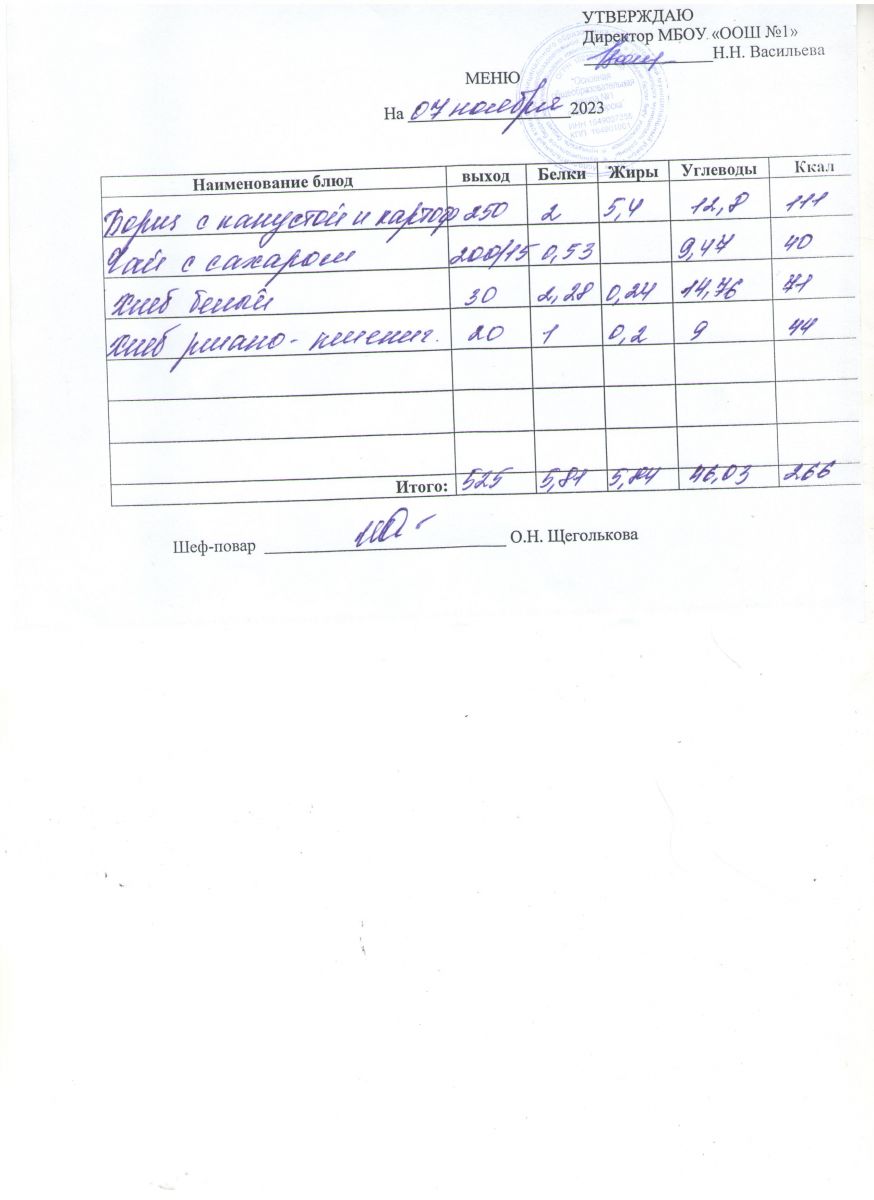 УТВЕРЖДАЮ
Директор МБОУ «ООШ №1»
Н.Н. Васильева
МЕНЮ
На 07 ноября 2023
"Основная
общеобразовательная
ИНН 1649007255
КПП 164901001
Наименование блюд выход Белки Жиры Углеводы Ккал
Борщ с капустой и картоф 250 2 5,4 12,8 111
Чай с сахаром 200/15 0,53 9,47 40
Хлеб белый 30 2,28 0,24 14,76 71
Хлеб ржано-пшенич. 20 1 0,2 9 44
Итого: 525 5,81 5,84 46,03 266
Шеф-повар О.Н. Щеголькова